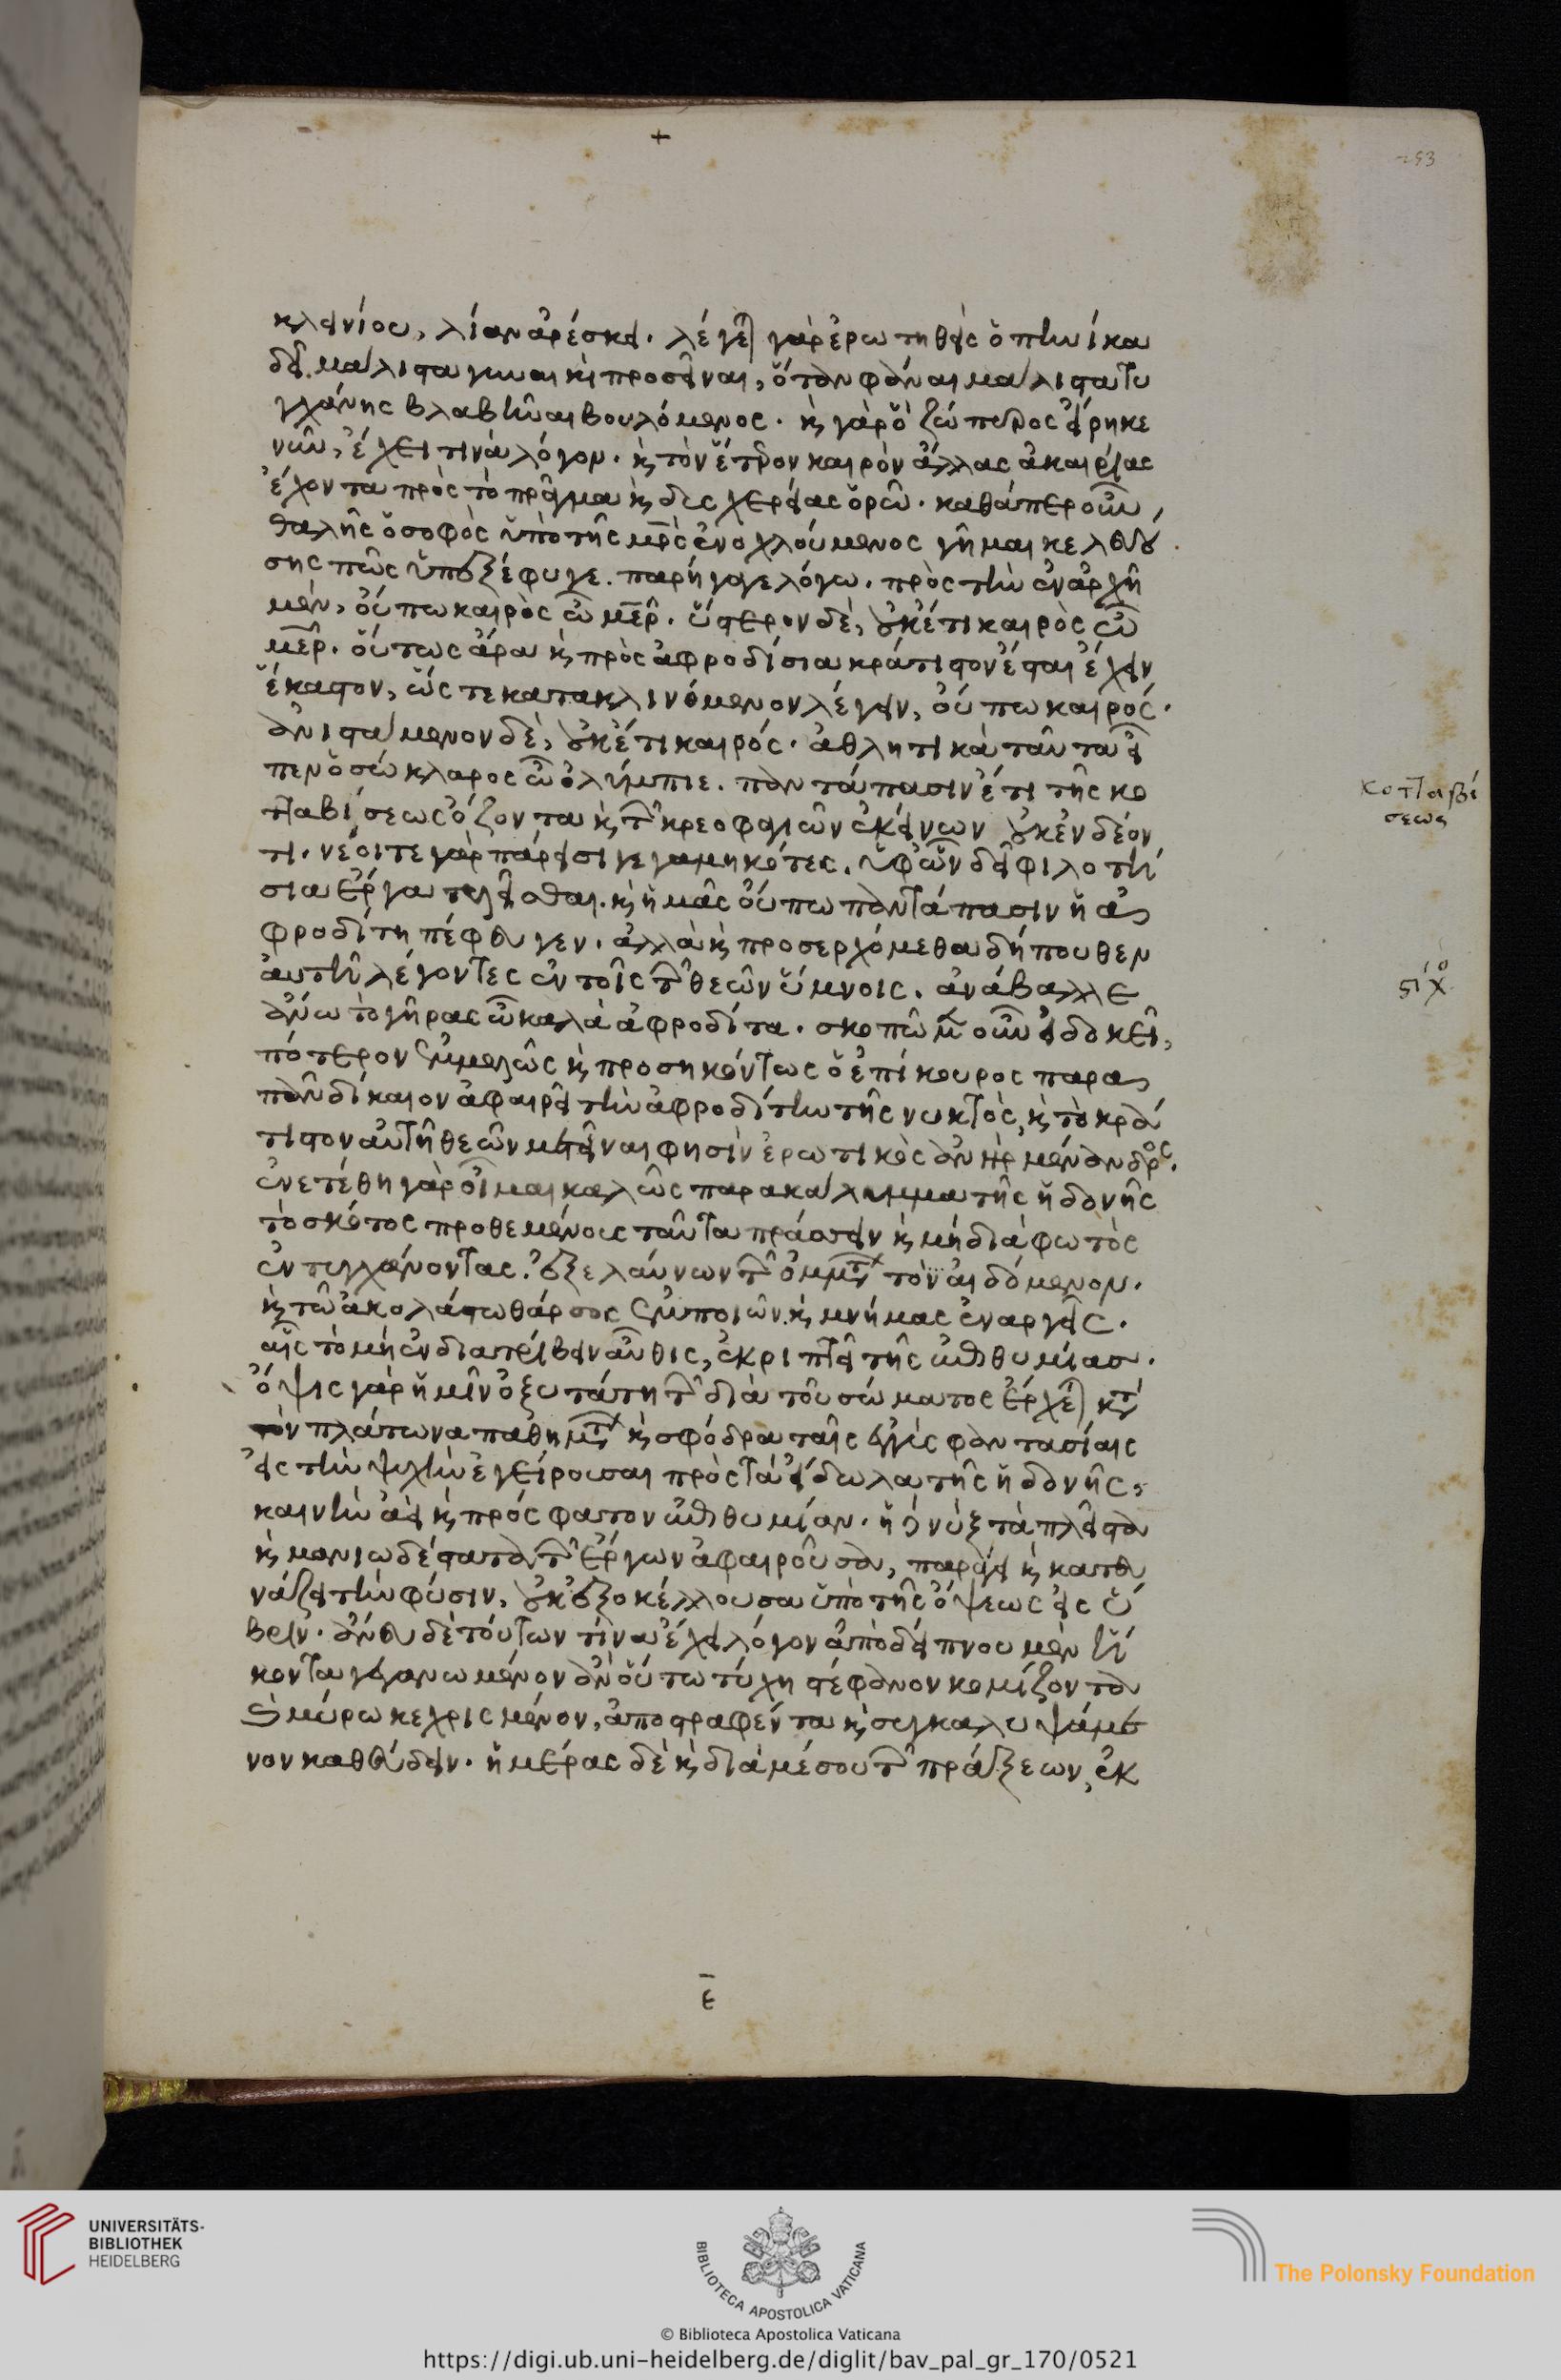 κλεινίου, λίαν ἀρέσκει. λέγεται γὰρ ἐρωτηθεὶς ὁπηνίκα
δεῖ μάλιστα γυναικὶ προσεῖναι, ὅταν φάναι μάλιστα τυ
γχάνης βλαβῆναι βουλόμενος. κ γὰρ ὃ ζώπυρος εἴρηκε
νῦν, ἔχει τινὰ λόγον. κ τὸν ἕτερον καιρὸν ἄλλας ἀκαιρίας
ἔχοντα πρὸς τὸ πρᾶγμα κ δυσχερείας ὁρῶ. καθάπερ οὖν,
θαλῆς ὁ σοφὸς ὑπὸ τῆς μρ̅ὸς ἐνοχλούμενος γῆμαι κελευού
σης πῶς ὑπεξέφυγε. παρήγαγε λόγω. πρὸς τὴν ἐν ἀρχῆ
μὲν, οὔπω καιρὸς ὦ μῆ̅ερ. ὕστερον δὲ, οὐκέτι καιρὸς ὦ
μῆ̅ερ. οὕτως ἄρα κ πρὸς ἀφροδίσια κράτιστον ἔσται ἔχειν
ἕκαστον, ὥστε κατακλινόμενον λέγειν, οὔπω καιρός.
ἀνιστάμενον δὲ, οὐκέτι καιρός. ἀθλητικὰ ταῦτα εἶ
πεν ὁ σώκλαρος ὦ ὀλύμπιε. παντάπασιν ἔτι τῆς κο
τταβίσεως ὄζοντα κ τῶν κρεοφαγιῶν ἐκείνων οὐκ ἐν δέον
τι. νέοι τε γὰρ πάρεισι γεγαμηκότες. ὑφ' ὧν δεῖ φιλοτή
σια ἔργα τελεῖσθαι. κ ἡμᾶς οὔπω παντάπασιν ἡ ἀ
φροδίτη πέφευγεν. ἀλλὰ κ προσευχόμεθα δήπουθεν
αὐτῆ λέγοντες ἐν τοῖς τῶν θεῶν ὕμνοις. ἀνάβαλλε
ἄνω τὸ γῆρας ὦ καλὰ ἀφροδίτα. σκοπῶμεν οὖν εἰ δοκεῖ,
πότερον ἐμμελῶς κ προσηκόντως ὁ ἐπίκουρος παρα
πᾶν δίκαιον ἀφαιρεῖ τὴν ἀφροδίτην τῆς νυκτὸς, κ τὸ κρά
τιστον αὐτῆ θεῶν μετεῖναι φησὶν ἐρωτικὸς ἀνὴρ μένανδρος.
ἐνετέθη γὰρ οἶμαι καλῶς παρακάλυμμα τῆς ἡδονῆς
τὸ σκότος προθεμένοις ταῦτα πράσσειν κ μὴ διὰ φωτὸς
ἐντυγχάνοντας. ἐξελαύνων τῶν ὀμμάτων τὸν αἰδόμενον.
κ τῶ ἀκολάστω θάρσος ἐμποιῶν κ μνήμας ἐναργεῖς.
αἷς τὸ μὴ ἐνδιατρίβειν αὖθις, ἐκριπτεῖ τῆς ἐπιθυμίας.
ὄψις γὰρ ἡμῖν ὀξυτάτη τῶν διὰ τοῦ σώματος ἔρχεται κατὰ
τὸν πλάτωνα παθημάτων κ σφόδρα ταῖς ἐγγὺς φαντασίαις
εἰς τὴν ψυχὴν ἐγείρουσαι πρὸς τὰ εἴδωλα τῆς ἡδονῆς,
καινὴν ἀεὶ κ πρόσφατον ἐπιθυμίαν. ἡ δὲ νὺξ τὰ πλεῖστα
κ μανιωδέστατα τῶν ἔργων ἀφαιροῦσα, παράγει κ κατευ
νάζει τὴν φύσιν, οὐκ ἐξοκέλλουσα ὑπὸ τῆς ὄψεως εἰς ὕ
βριν. ἄνευ δὲ τούτων τίνα ἔχει λόγον ἀπὸ δείπνου μὲν ἥ
κοντα γεγανωμένον ἂν οὕτω τύχη στέφανον κομίζοντα
κ μύρω κεχρισμένον, ἀποστραφέντα κ συγκαλυψάμε
νον καθεύδειν. ἡμέρας δὲ κ διὰ μέσου τῶν πράξεων, ἐκ
κοτταβί
σεως
στίχο
+
293
ε̅
UNIVERSITÄTS-
BIBLIOTHEK
HEIDELBERG
BIBLIOTECA APOSTOLICA VATICANA
The Polonsky Foundation
© Biblioteca Apostolica Vaticana
https://digi.ub.uni-heidelberg.de/diglit/bav_pal_gr_170/0521